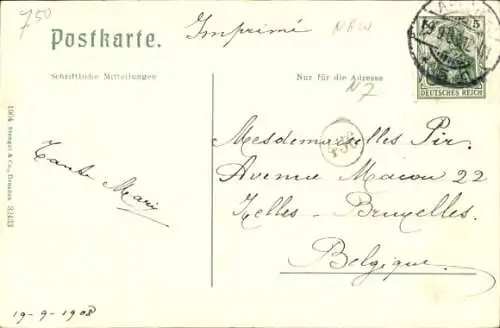 750
Postkarte.
Imprimé
NRW
5
DEUTSCHES REICH
Schriftliche Mitteilungen
Nur für die Adresse
N7
1904 Stengel & Co., Dresden 32433
Mesdemoiselles Pir.
Avenue Macou 22
Ixelles - Bruxelles.
Belgique.
Tante Marie
19-9-1908